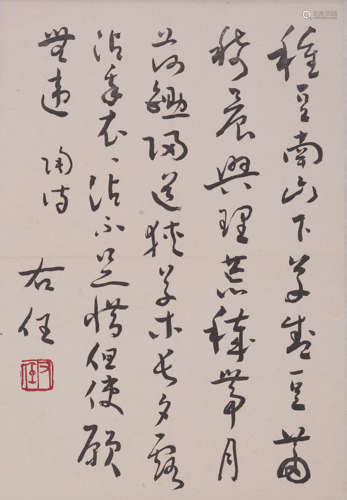 種豆南山下草盛豆苗
稀晨興理荒穢帶月
荷鋤歸道狹草木長夕露
沾我衣、沾不足惜但使願
無違 陶詩
右任
右任